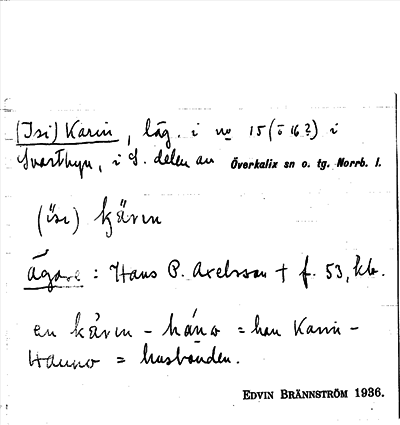 (Isi) Karin, låg. i no 15 (o 16?) i
Svartbyn, i S. delen av Överkalix sn o. tg. Norrb. l.
(isi) kjärin
Ägare: Hans P. Axelsson † f. 53, kb.
en kårin - hánno = han Karin -
Hanno = husbonden.
EDVIN BRÄNNSTRÖM 1936.